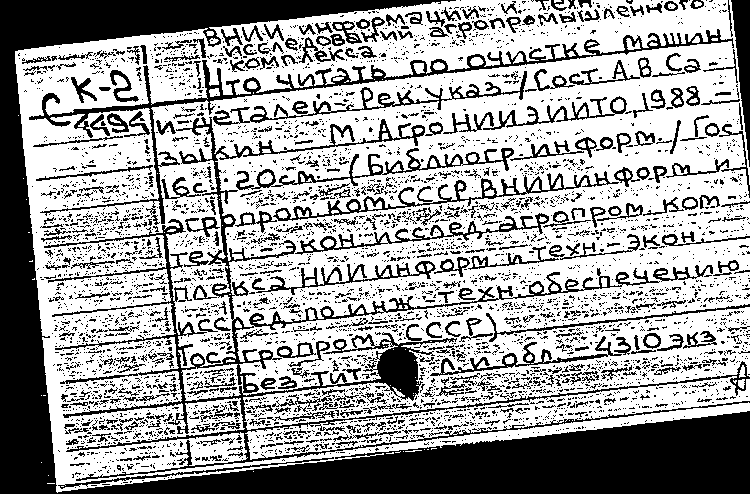 ВНИИ информации и техн.
исследований агропромышленного
комплекса.
Что читать по очистке машин
и деталей: Рек. указ / Сост. А.В. Са-
зыкин. – М.: АгроНИИЭИИТО, 1988. –
16с.; 20см – (Библиогр. информ. / Гос.
агропром. ком. СССР, ВНИИ информ. и
техн.-экон. исслед. агропром. ком-
плекса, НИИ информ. и техн.-экон.
исслед. по инж.-техн. обеспечению
Госагропрома СССР)
Без тит. л. и обл. – 4310 экз.
С К-2
4494